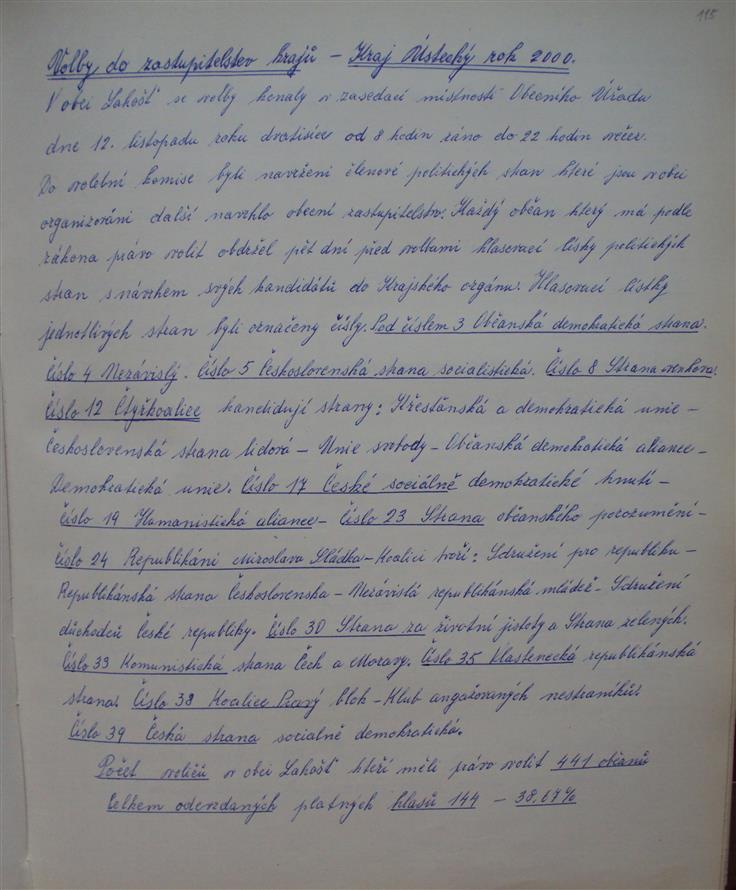 115
Volby do zastupitelstev krajů – Kraj Ústecký rok 2000.
V obci Lahošť se volby konaly v zasedací místnosti Obecního Úřadu
dne 12. listopadu roku dvatisíce od 8 hodin ráno do 22 hodin večer.
Do volební komise byli navrženi členové politických stran které jsou v obci
organizováni další navrhlo obecní zastupitelstvo. Každý občan který má podle
zákona právo volit obdržel pět dní před volbami hlasovací lísky politických
stran s návrhem svých kandidátů do Krajského orgánu. Hlasovací lístky
jednotlivých stran byli označeny čísly. Pod číslem 3 Občanská demokratická strana.
Číslo 4 Nezávislj. Číslo 5 Československá strana socialistická. Číslo 8 Strana venkova.
Číslo 12 Čtyřkoalice kandidují strany: Křesťanská a demokratická unie –
Československá strana lidová – Unie svobody – Občanská demokratická aliance –
Demokratická unie. Číslo 17 České sociálně demokratické hnutí –
Číslo 19 Humanistická aliance – Číslo 23 Strana občanského porozumění –
Číslo 24 Republikáni Miroslava Sládka – Koalici tvoří: Sdružení pro republiku –
Republikánská strana Československa – Nezávislá republikánská mládež – Sdružení
důchodců České republiky. Číslo 30 Strana za životní jistoty a Strana zelených.
Číslo 33 Komunistická strana Čech a Moravy. Číslo 35 Vlastenecká republikánská
strana. Číslo 38 Koalice Pravý blok – Klub angažovaných nestraníků.
Číslo 39 Česká strana socialně demokratická.
Počet voličů v obci Lahošť kteří měli právo volit 441 občanů
Celkem odevzdaných platných hlasů 144 – 38,67%